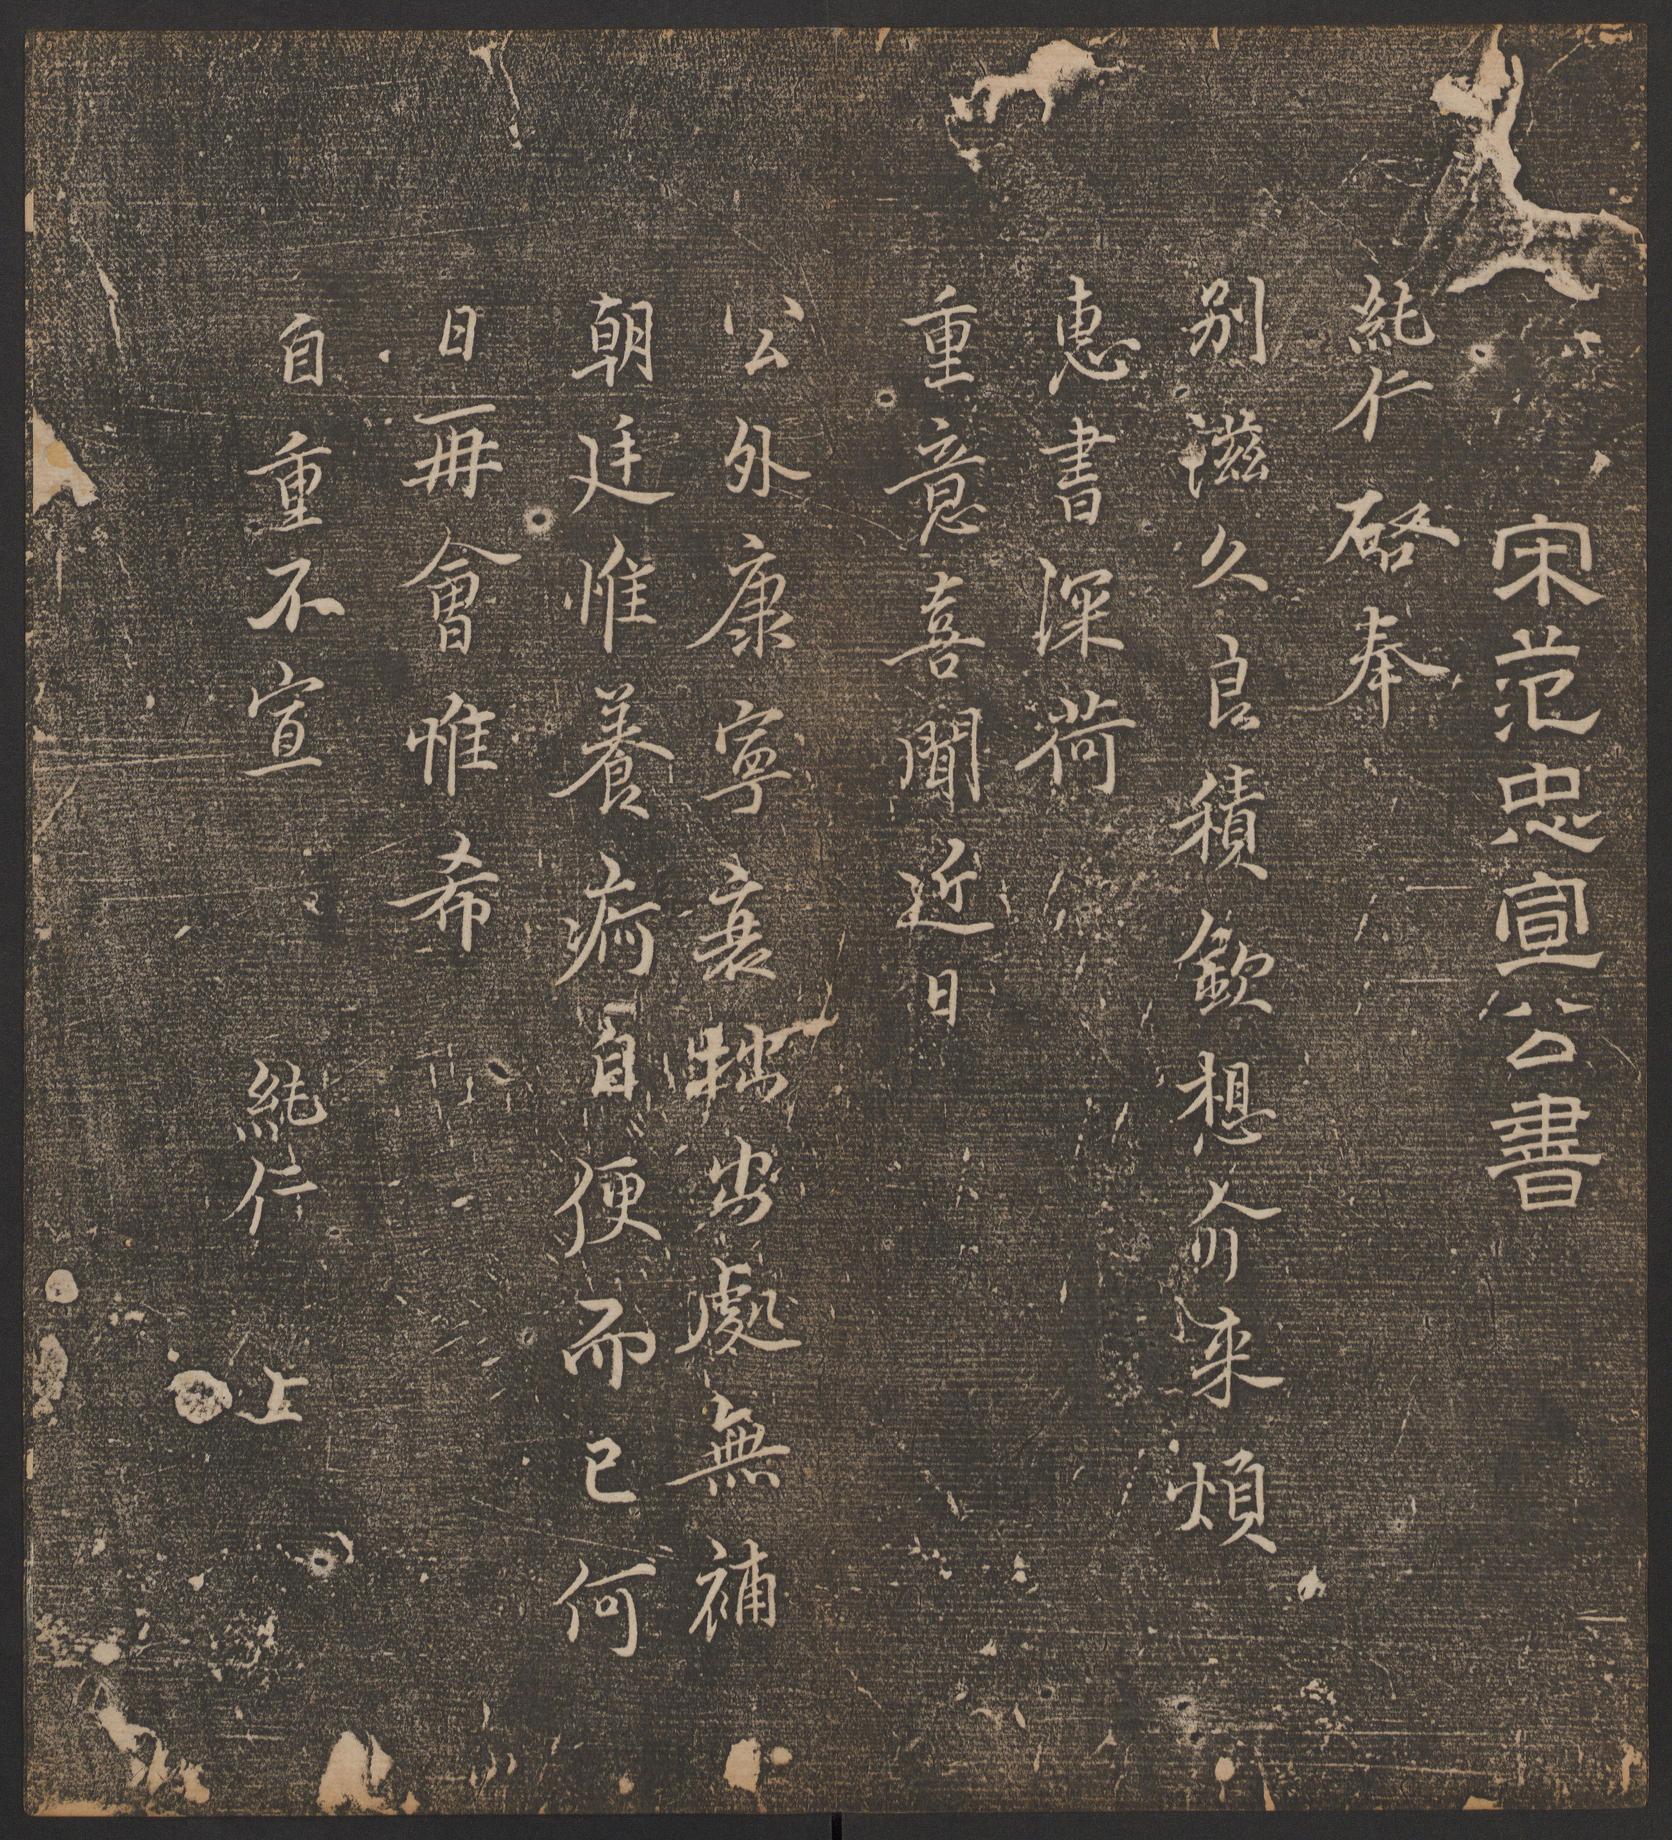 宋范忠宣公書
純仁啓奉
別滋久良積欽想介来煩
惠書深荷
重意喜聞近日
公外康寧衰拙出處無補
朝廷惟養痾自便而已何
日再會惟希
自重不宣 純仁 上